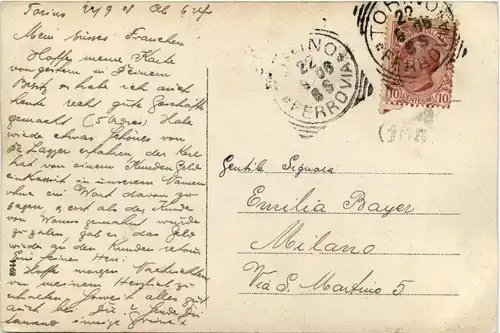 Torino 22/9 08 Ab 6 Uhr
Mein süsses Frauchen!
Hoffe meine Karte
von gestern in Deinem
Besitz, habe ich auch
heute recht gute Geschäfte
gemacht (5 Ordres) Habe
wieder etwas Schönes von
de Lazzer erfahren, der Kerl
hat von einem Kunden Geld
einkassirt in unserem Namen
ohne ein Wort davon zu
sagen, erst als der Kunde
von Wanns gemahnt wurde
zu zalen, gab er das Geld
wieder an den Kunden retour
Ein feiner Herr!
Hoffe morgen Nachrichten
von meinem Herzlieb zu
erhalten, soweit alles gut
auch bei Dir, ich sende Dir
innige Grüsse &
8944
TORINO
FERROVIA
TORINO
22
FERROVIA
10
10
Gentile Signora
Emilia Bayer
Milano
Via S. Martino 5